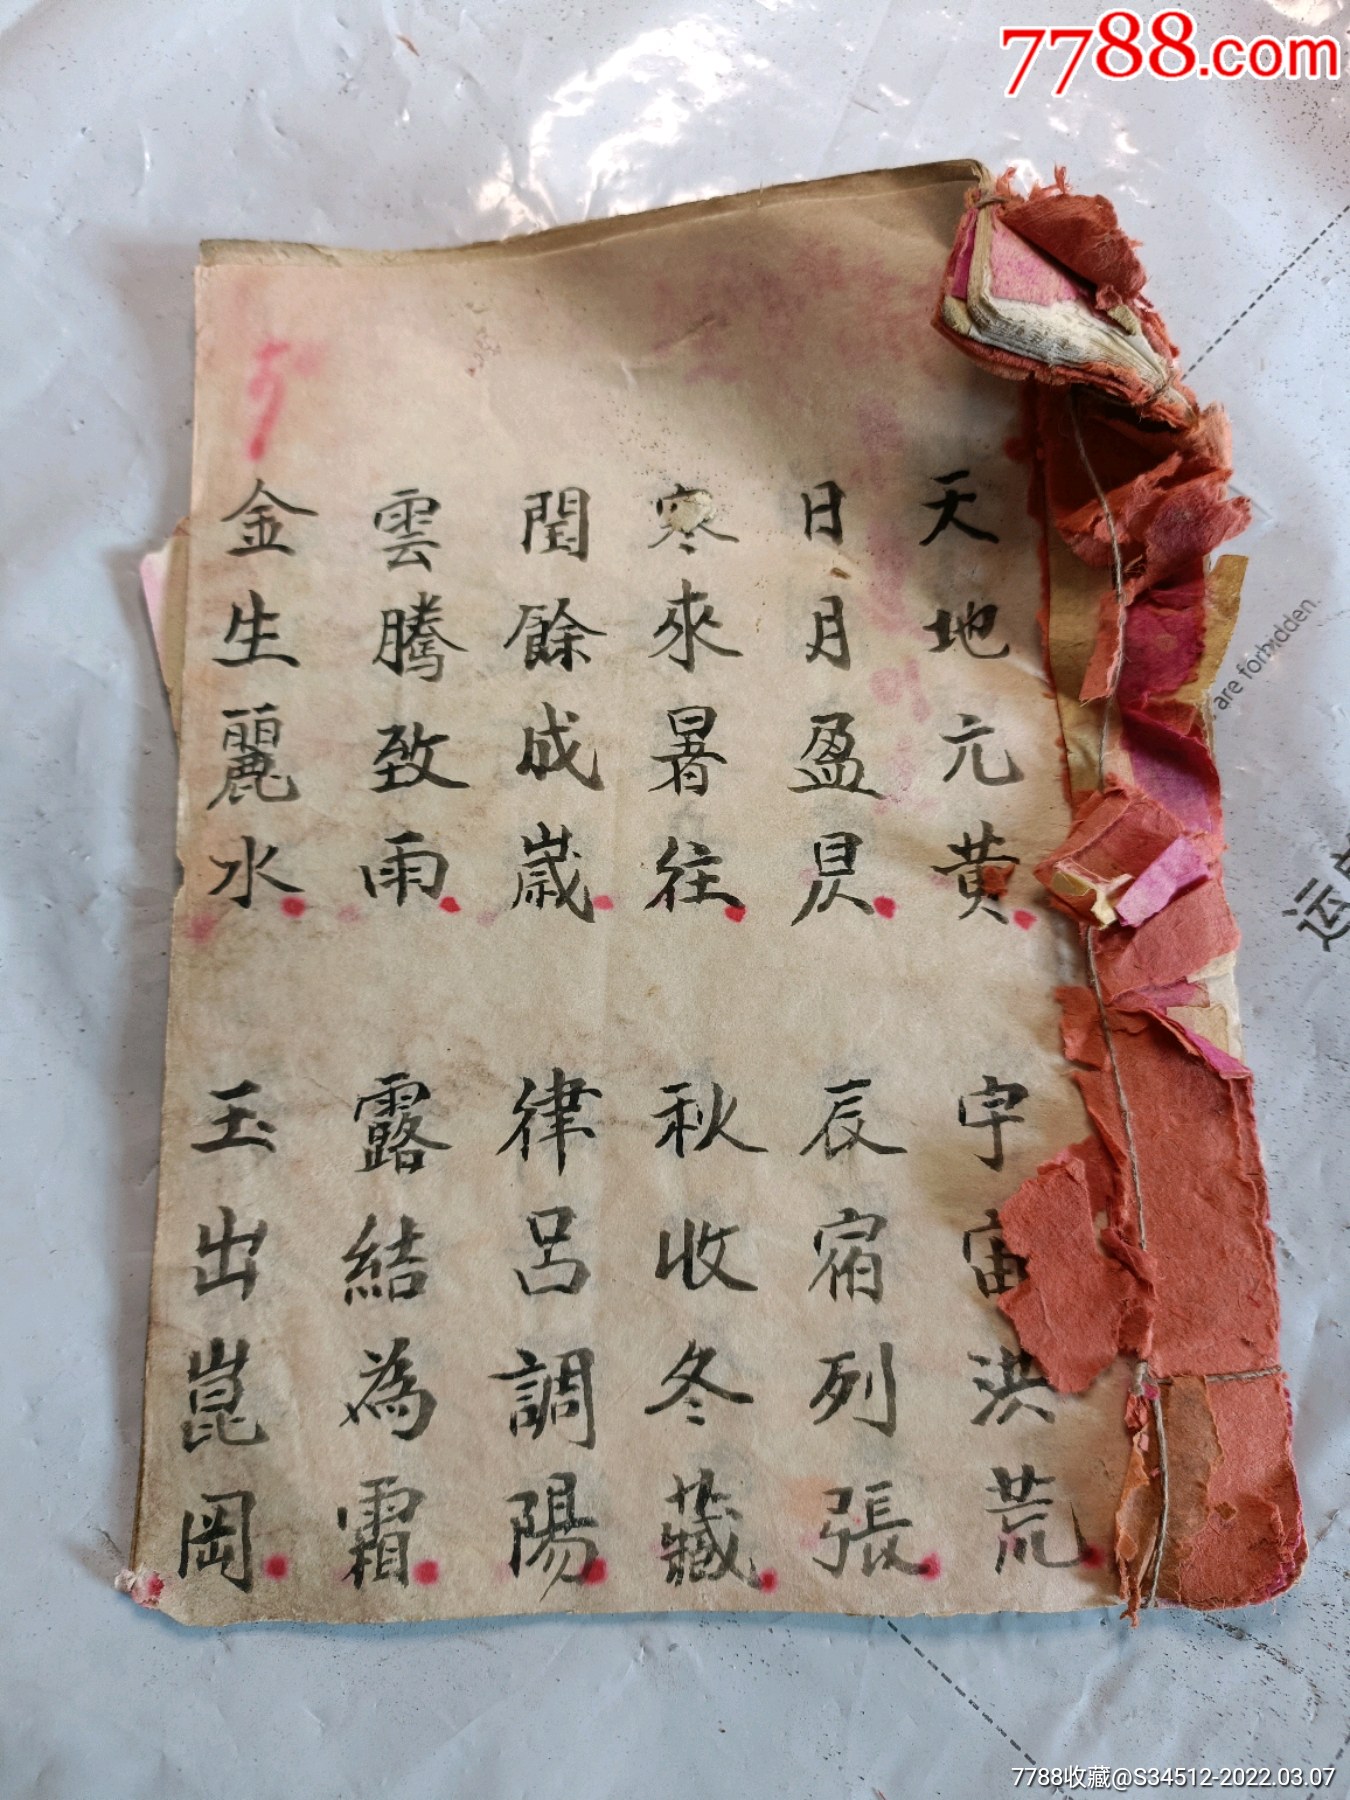 7788.com
天地元黄
宇宙洪荒
日月盈昃
辰宿列張
寒來暑往
秋收冬藏
閏餘成歲
律呂調陽
雲騰致雨
露結為霜
金生麗水
玉出崑岡
are forbidden.
运
7788收藏@S34512-2022.03.07